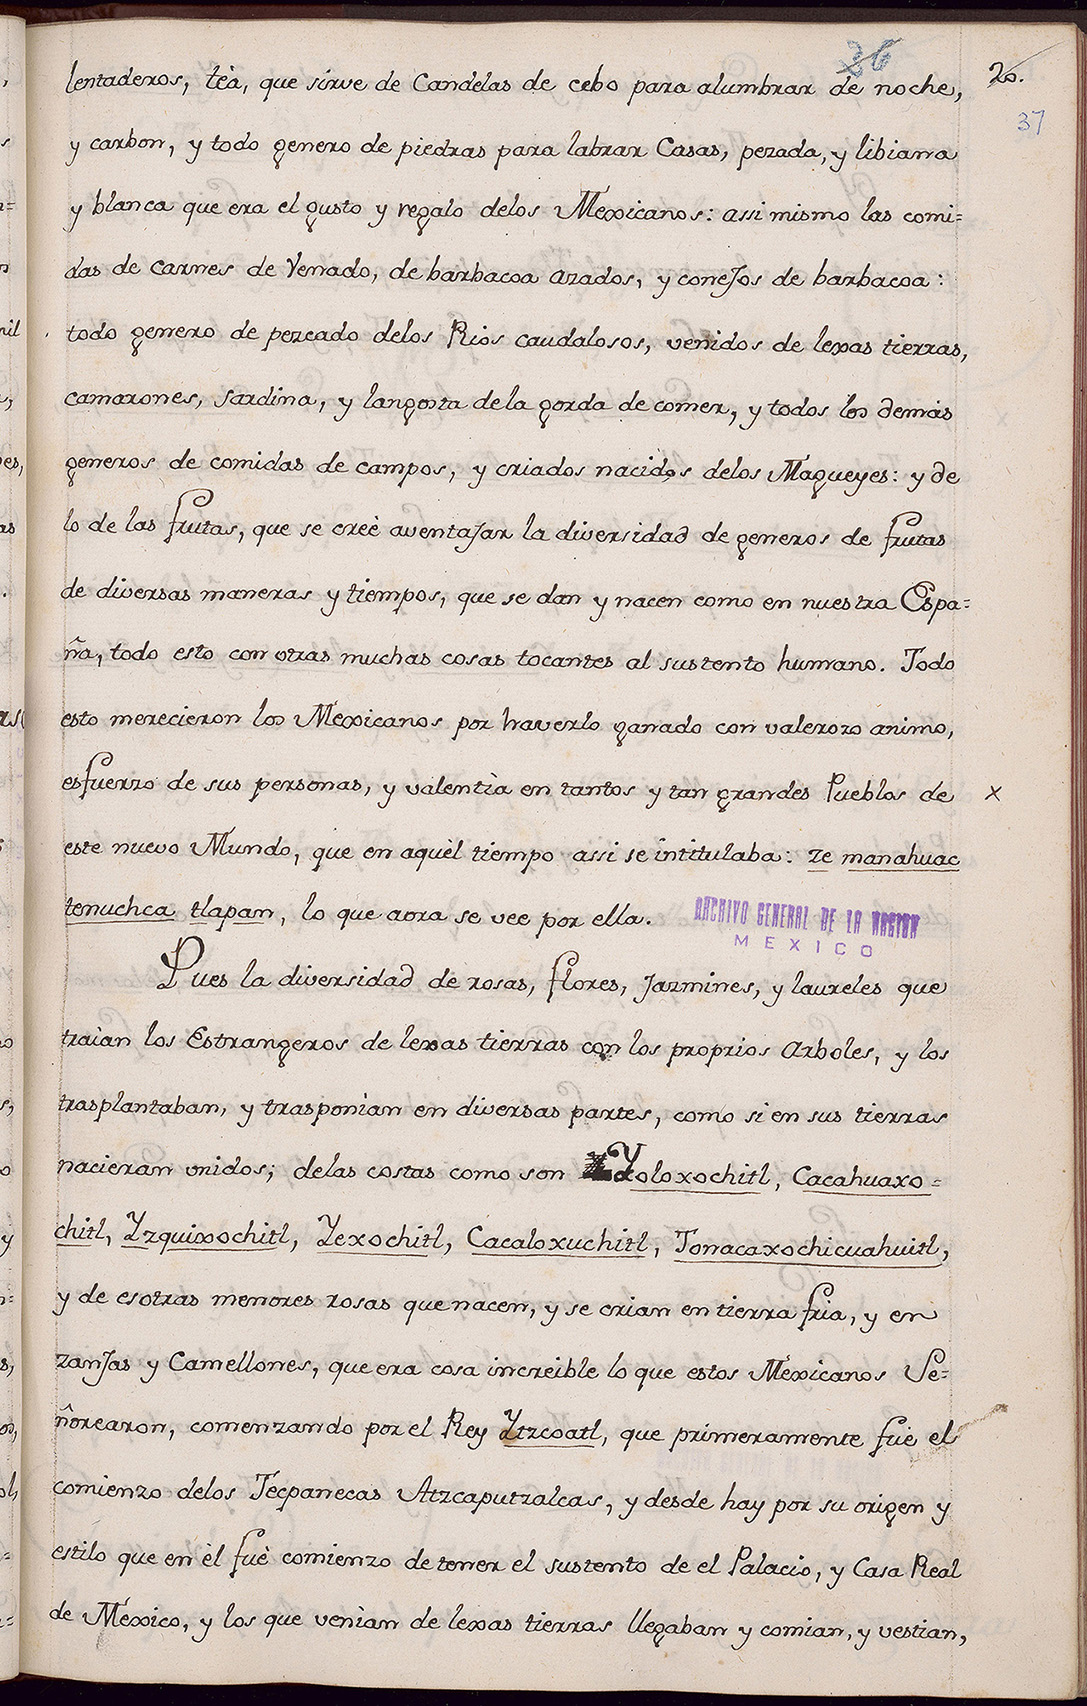 36
20.
37
lentaderos, tèa, que sirve de Candelas de cebo para alumbrar de noche,
y carbon, y todo genero de piedras para labrar Casas, pezada, y libiana
y blanca que era el gusto y regalo delos Mexicanos: assi mismo las comi=
das de carnes de Venado, de barbacoa azados, y conejos de barbacoa:
todo genero de pezcado delos Rios caudalosos, venidos de lexas tierras,
camarones, Sardina, y langosta dela gorda de comer, y todos los demás
generos de comidas de campos, y criados nacidos delos Magueyes: y de
lo de las frutas, que se creè aventajar la diversidad de generos de frutas
de diversas maneras y tiempos, que se dan y nacen como en nuestra Espa=
ña, todo esto con otras muchas cosas tocantes al sustento humano. Todo
esto merecieron los Mexicanos por haverlo ganado con valerozo animo,
esfuerzo de sus personas, y valentìa en tantos y tan grandes Pueblos de
x
este nuevo Mundo, que en aquèl tiempo assi se intitulaba: ze manahuac
tenuchca tlapan, lo que aora se vee por ella.
ARCHIVO GENERAL DE LA NACION
MEXICO
Pues la diversidad de rosas, flores, Jazmines, y laureles que
traìan los Estrangeros de lexas tierras con los proprios Arboles, y los
trasplantaban, y trasponìan en diversas partes, como si en sus tierras
nacieran unidos; delas costas como son Yoloxochitl, Cacahuaxo=
chitl, Yzquixochitl, Yexochitl, Cacaloxuchitl, Tonacaxochicuahuitl,
y de esotras menores rosas que nacen, y se crian en tierra fria, y en
zanjas y Camellones, que era cosa increible lo que estos Mexicanos Se=
ñorearon, comenzando por el Rey Ytzcoatl, que primeramente fuè el
comienzo delos Tecpanecas Atzcaputzalcas, y desde hay por su origen y
estilo que en èl fuè comienzo de tener el sustento de el Palacio, y Casa Real
de Mèxico, y los que venìan de lexas tierras llegaban y comian, y vestian,